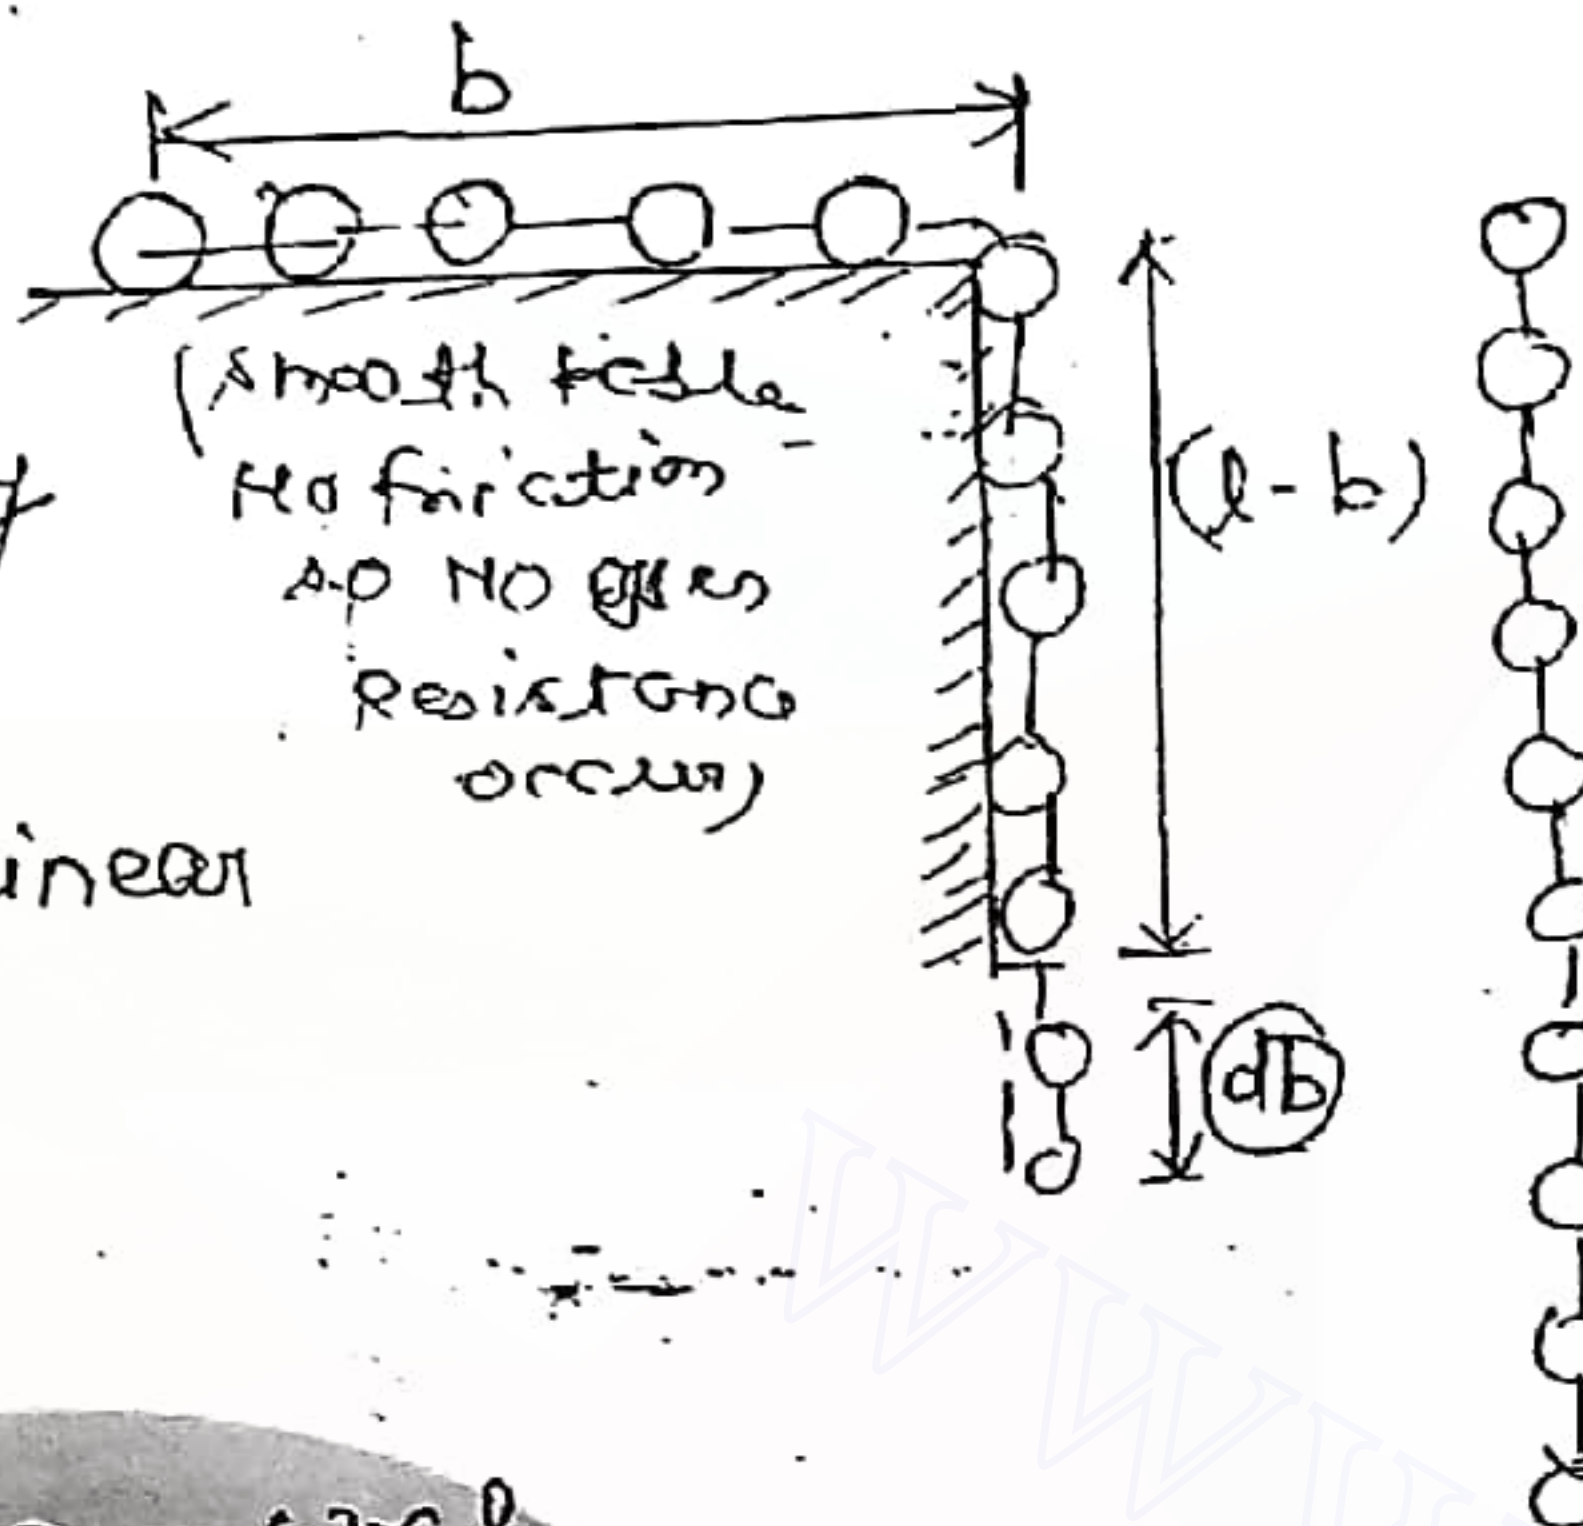 b
(smooth table
No friction
so NO
Resistance
occur)
(l - b)
inear
db
WWW